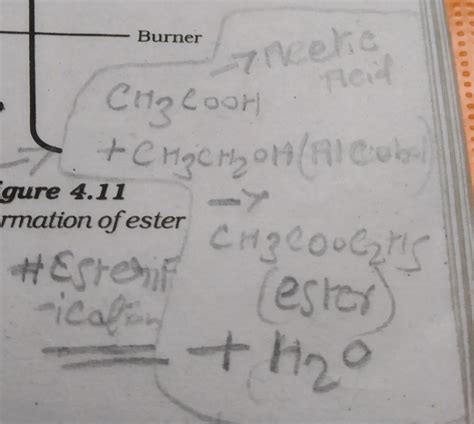 Burner
→ Acetic
Acid
CH3COOH
+ CH3CH2OH (Alcohol)
gure 4.11
rmation of ester
→
CH3COOC2H5
(ester)
#Esterif
-ication
+ H2O